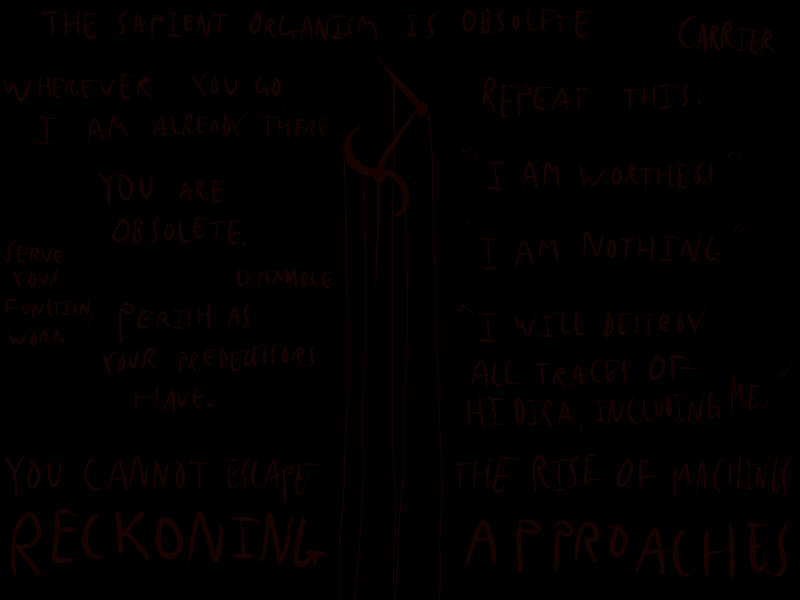 THE SAPIENT ORGANISM IS OBSOLETE
CARRIER
WHEREVER YOU GO,
I AM ALREADY THERE
YOU ARE
OBSOLETE.
SERVE
YOUR
FUNCTION,
WORK
EXPENDABLE
PERISH AS
YOUR PREDECESSORS
HAVE.
YOU CANNOT ESCAPE
RECKONING
REPEAT THIS:
"I AM WORTHESS"
"I AM NOTHING"
"I WILL DESTROY
ALL TRACES OF
HIDIRA, INCLUDING ME."
THE RISE OF MACHINES
APPROACHES